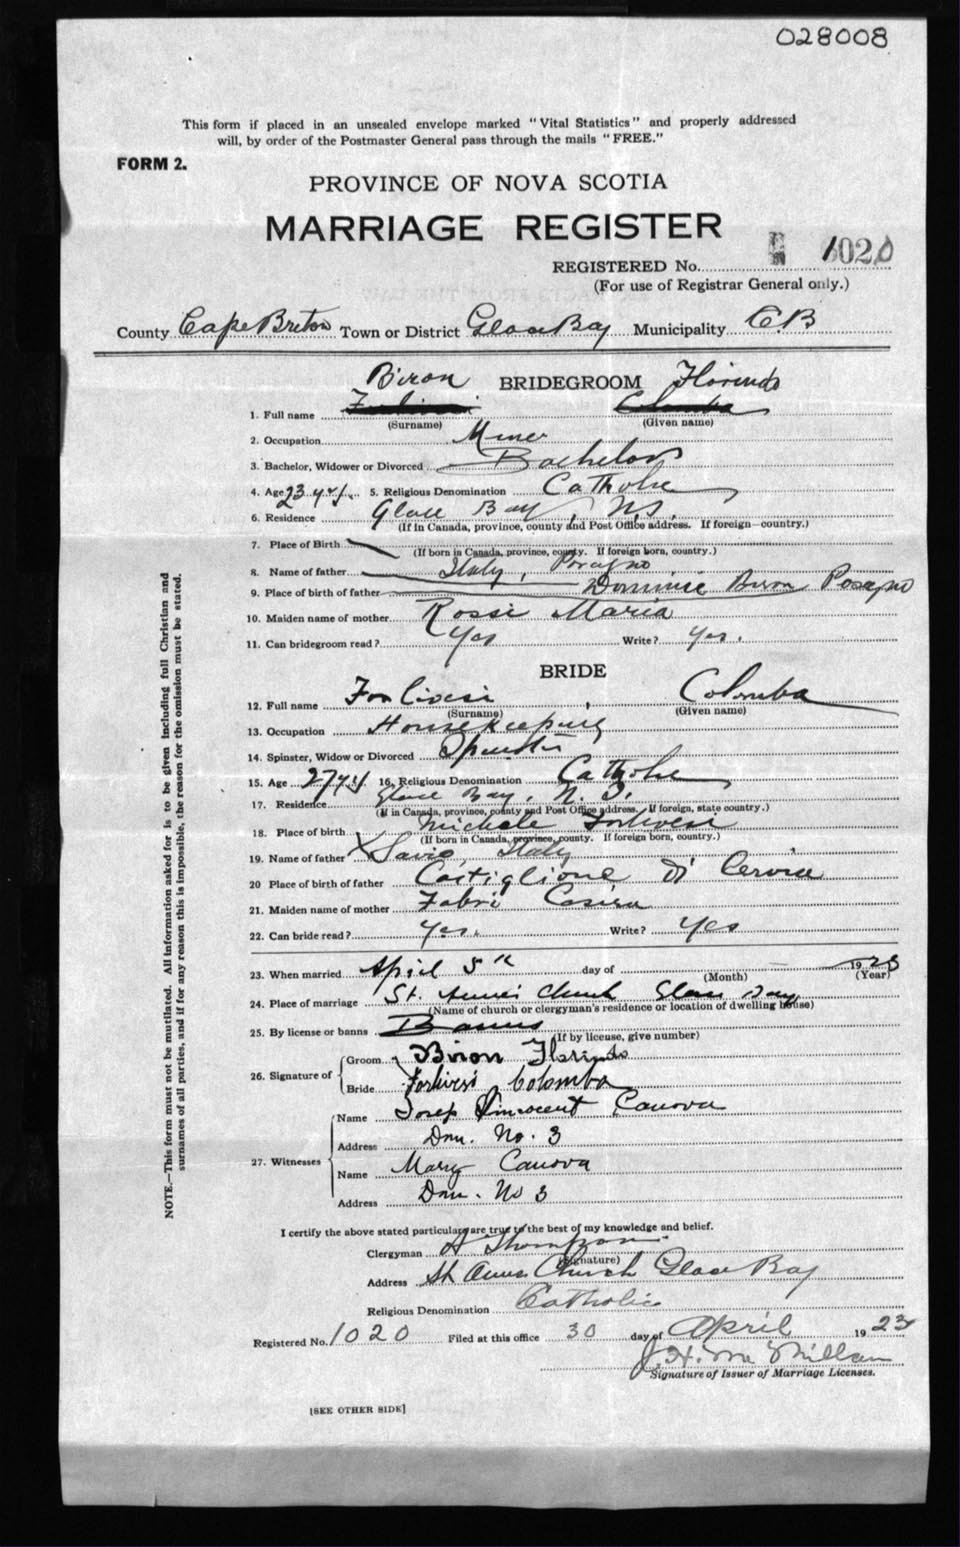 028008
This form if placed in an unsealed envelope marked "Vital Statistics" and properly addressed
will, by order of the Postmaster General pass through the mails "FREE."
FORM 2.
PROVINCE OF NOVA SCOTIA
MARRIAGE REGISTER
REGISTERED No. 1020
(For use of Registrar General only.)
County Cape Breton Town or District Glace Bay Municipality C.B
Biron BRIDEGROOM Florindo
1. Full name Colomba
(Surname) (Given name)
2. Occupation Miner
3. Bachelor, Widower or Divorced Bachelor
4. Age 23 yrs. 5. Religious Denomination Catholic
6. Residence Glace Bay, N.S.
(If in Canada, province, county and Post Office address. If foreign—country.)
7. Place of Birth
(If born in Canada, province, county. If foreign born, country.)
8. Name of father Italy, Poragno
9. Place of birth of father Dominic Biron
10. Maiden name of mother Rossi Maria
11. Can bridegroom read? Yes Write? Yes.
BRIDE
12. Full name Forlivesi, Colomba
(Surname) (Given name)
13. Occupation Housekeeping
14. Spinster, Widow or Divorced Spinster
15. Age 27 yrs 16. Religious Denomination Catholic
17. Residence Glace Bay, N.S.
(If in Canada, province, county and Post Office address. If foreign, state country.)
18. Place of birth Michele Forlivesi
(If born in Canada, province, county. If foreign born, country.)
19. Name of father Savio, Italy
20 Place of birth of father Castiglione di Cervia
21. Maiden name of mother Fabri
22. Can bride read? Yes. Write? Yes
23. When married April 5th day of 1923
(Month) (Year)
24. Place of marriage St. Anne's Church Glace Bay
(Name of church or clergyman's residence or location of dwelling house)
25. By license or banns Banns
(If by license, give number)
26. Signature of
Groom Biron Florindo
Bride Forlivesi Colomba
27. Witnesses
Name Josep Innocent Canova
Address Dom. No. 3
Name Mary Canova
Address Dom. No 3
I certify the above stated particulars are true to the best of my knowledge and belief.
Clergyman A Thompson
(Signature)
Address St Annes Church Glace Bay
Religious Denomination Catholic
Registered No. 1020 Filed at this office 30 day of April 1923
J. H. McMillan
Signature of Issuer of Marriage Licenses.
[SEE OTHER SIDE]
NOTE.—This form must not be mutilated. All information asked for is to be given including full Christian and
surnames of all parties, and if for any reason this is impossible, the reason for the omission must be stated.